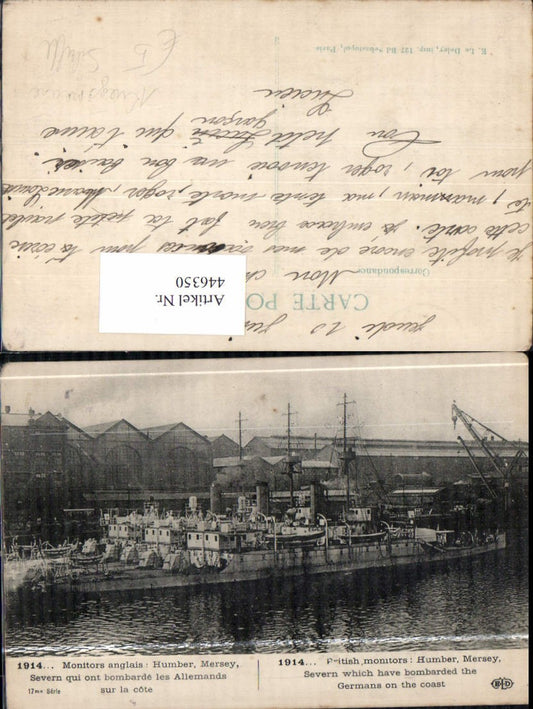 CARTE PO
Correspondance
jeudi 10
Mon
je profite encore de mes vacances pour
cette carte. je embrasse bien fort ta petite
maman, ma tante
pour toi, roger t'envoie un bon baiser
Ton petit garçon qui t'aime
Lucien
E. Le Deley, imp. 127 Bd Sébastopol, Paris
Artikel Nr.
446350
1914... Monitors anglais : Humber, Mersey,
Severn qui ont bombardé les Allemands
sur la côte
17me Série
1914... British monitors : Humber, Mersey,
Severn which have bombarded the
Germans on the coast
ELD